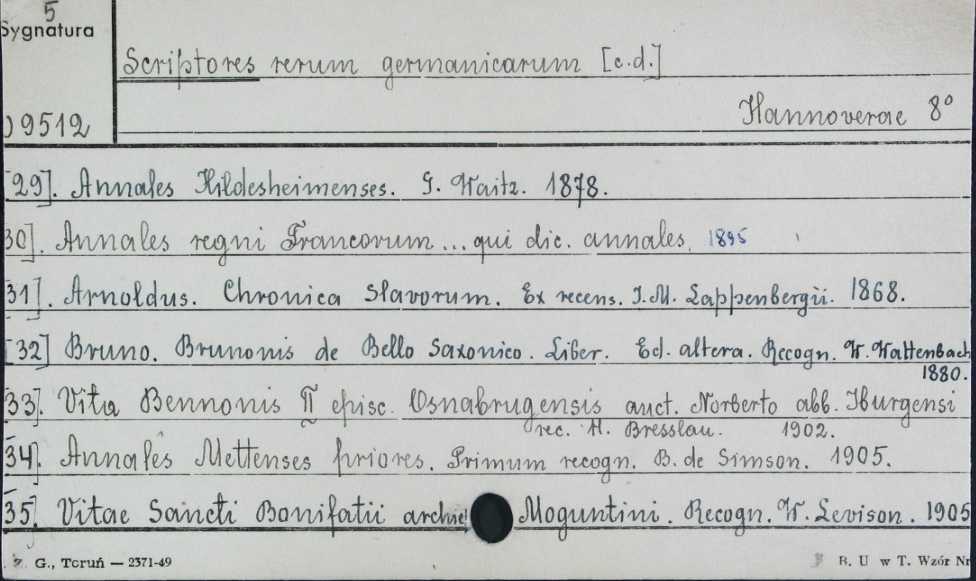 5
Sygnatura
Scriptores rerum germanicarum [c.d.]
Hannoverae 8°
09512
[29]. Annales Hildesheimenses. G. Waitz. 1878.
30]. Annales regni Francorum... qui dic. annales. 1895
31]. Arnoldus. Chronica Slavorum. Ex recens. I.M. Lappenbergii. 1868.
[32] Bruno. Brunonis de Bello Saxonico. Liber. Ed. altera. Recogn. W. Wattenbach
1880.
33]. Vita Bennonis II episc. Osnabrugensis auct. Norberto abb. Iburgensi
rec. H. Bresslau. 1902.
34]. Annales Mettenses priores. Primum recogn. B. de Simson. 1905.
35]. Vitae Sancti Bonifatii archie Moguntini. Recogn. W. Levison. 1905
Z. G., Toruń — 2371-49
B. U w T. Wzór Nr